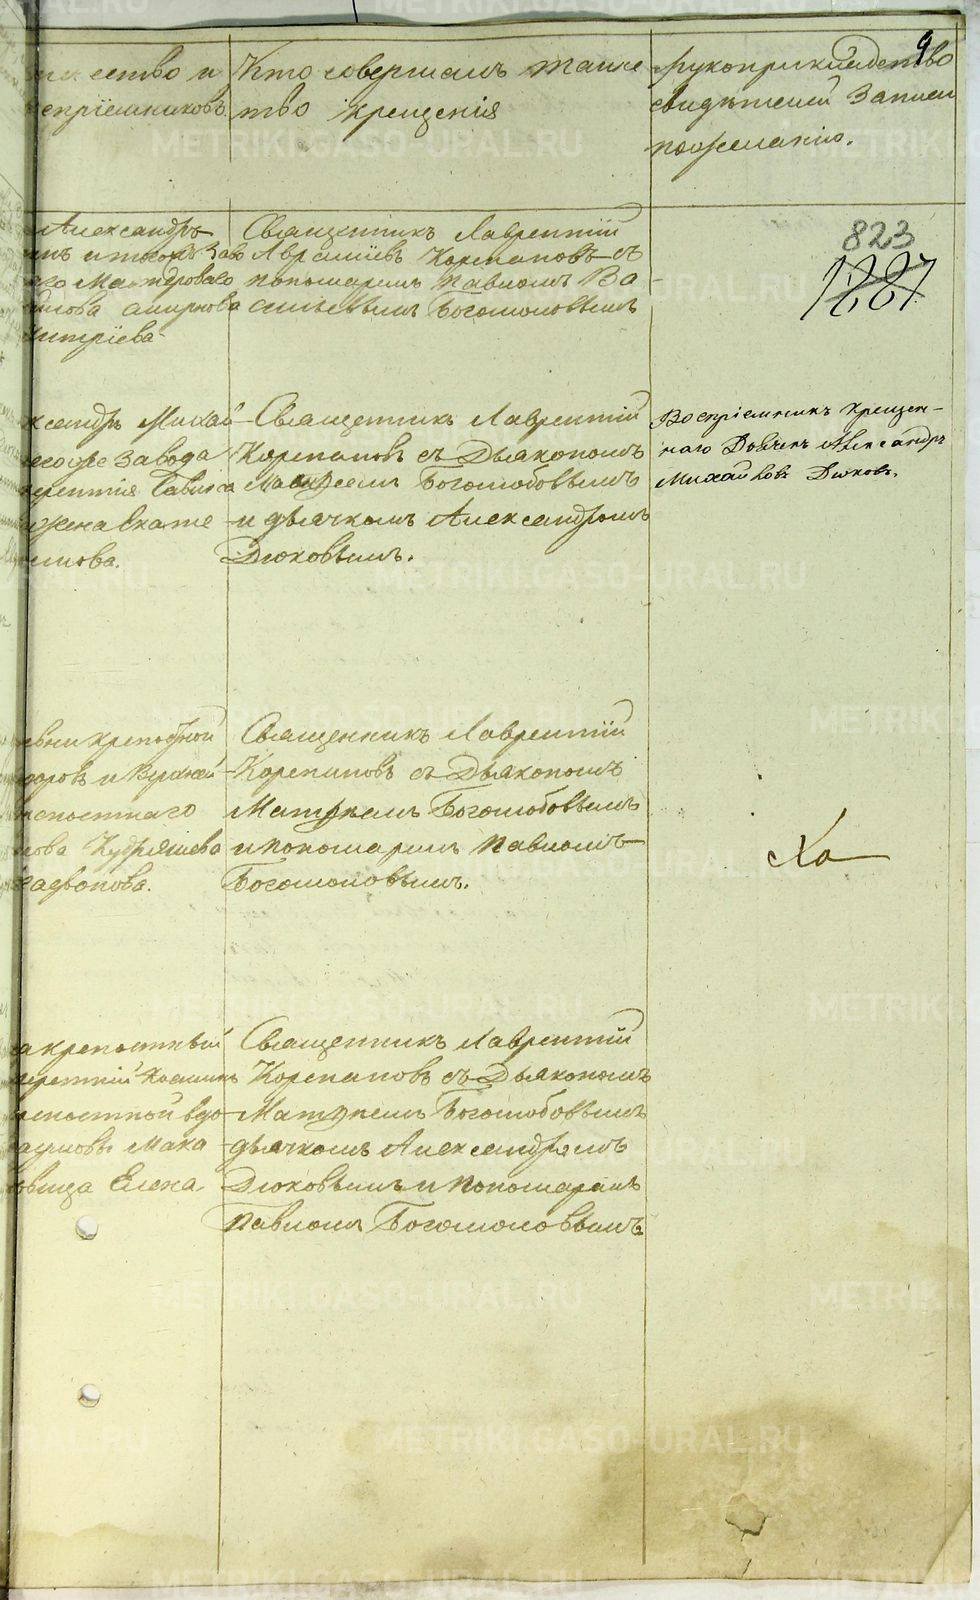 9
ство и
спріемниковъ.
Кто совершалъ таинс
тво крещенія
Рукоприкладство
свидѣтелей записи
по желанію.
Александръ
Мастероваго
Смирнова
митріева
Священникъ Лаврентій
Корепановъ съ
пономаремъ Павломъ Ва
сильевымъ Богомоловымъ
823
1887
ксандръ Михай
гоже завода
рентія Савина
жена Екате
Священникъ Лаврентій
Корепановъ съ Дьякономъ
Матѳеемъ Боголюбовымъ
и дьячкомъ Александромъ
Дюковымъ.
Воспріемникъ крещен-
наго Дьячекъ Александръ
Михайловъ Дюковъ.
евни крепостной
репостнаго
Кудряшева
Священникъ Лаврентій
Корепановъ съ Дьякономъ
Матѳеемъ Боголюбовымъ
и пономаремъ Павломъ
Богомоловымъ.
Ха
крепостный
рентій
репостной вдо
Мака
вица Елена
Священникъ Лаврентій
Корепановъ съ Дьякономъ
Матѳеемъ Боголюбовымъ
дьячкомъ Александромъ
Дюковымъ и пономаремъ
Павломъ Богомоловымъ
METRIKI.GASO-URAL.RU